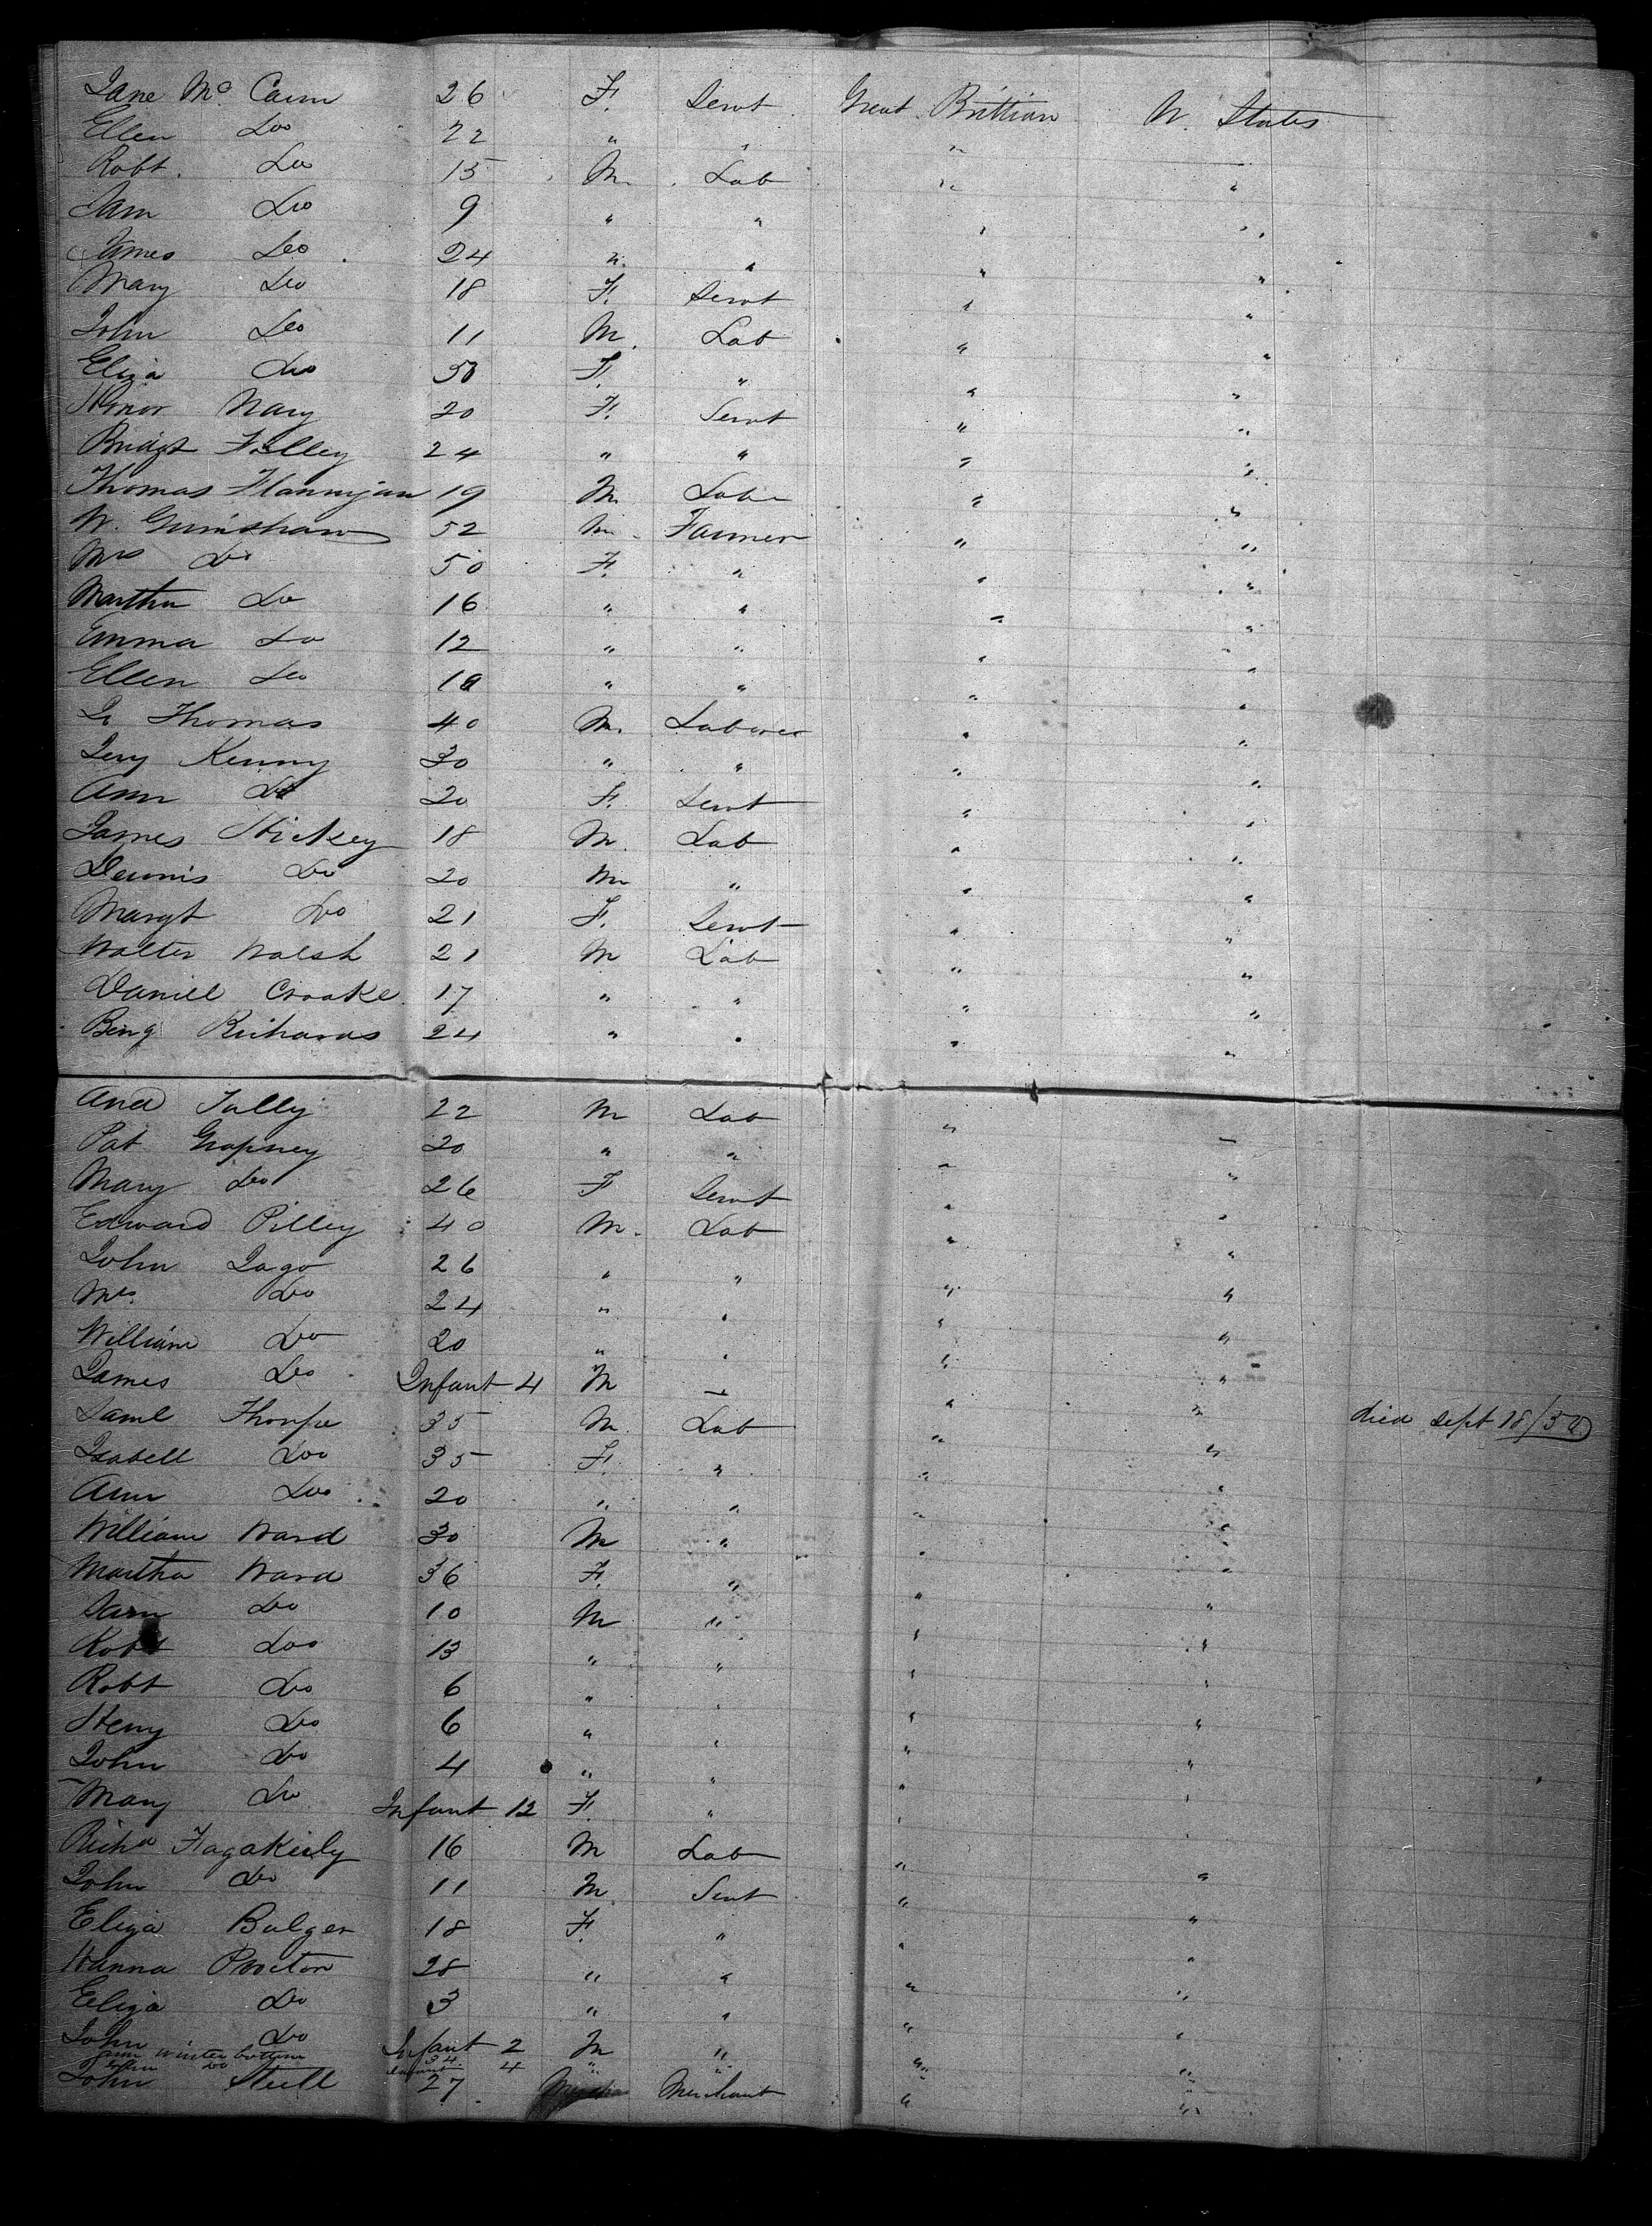 Jane Mc Cann 26 F. Servt Great Brittian U. States
Ellen Do 22 " " " "
Robt. Do 15 M. Lab " "
Sam Do 9 " " " "
James Do 24 " " " "
Mary Do 18 F. Servt " "
John Do 11 M. Lab " "
Eliza Do 50 F. " " "
Honor Nary 20 F. Servt " "
Bridgt Folley 24 " " " "
Thomas Flannigan 19 M Labr " "
W. Grimshaw 52 M. Farmer " "
Mrs Do 50 F. " " "
Martha Do 16 " " " "
Emma Do 12 " " " "
Ellen Do " " " "
Thomas 40 M. Laborer " "
Jery Kenny 30 " " " "
Ann Do 20 F. Servt " "
James Hickey 18 M. Lab " "
Dennis Do 20 M " " "
Margt Do 21 F. Servt " "
Walter Walsh 21 M Lab " "
Daniel Croake 17 " " " "
Benj Richards 24 " " " "
And Tully 22 M Lab " "
Pat 20 " " " "
Mary Do 26 F Servt " "
Edward Pilley 40 M. Lab " "
John Jago 26 " " " "
Mrs. Do 24 " " " "
William Do 20 " " " "
James Do Infant 4 M " "
Saml Thorpe 35 M. Lab " " died Sept 18/50
Isabell Do 35 F. " " "
Ann Do 20 " " " "
William Ward 30 M " " "
Martha Ward 36 F. " " "
Sam Do 10 M " " "
Robt Do 13 " " " "
Robt Do 6 " " " "
Henry Do 6 " " " "
John Do 4 " " " "
Mary Do Infant 12 F. " " "
Richd 16 M Lab " "
John Do 11 M Servt " "
Eliza Bulger 18 F. " " "
Hanna Procton 28 " " " "
Eliza Do 3 " " " "
John Do Infant 2 M " " "
Ann Winterbottom 34 " " " "
Do Infant 4 " " "
John Stell 27 Merchant " "